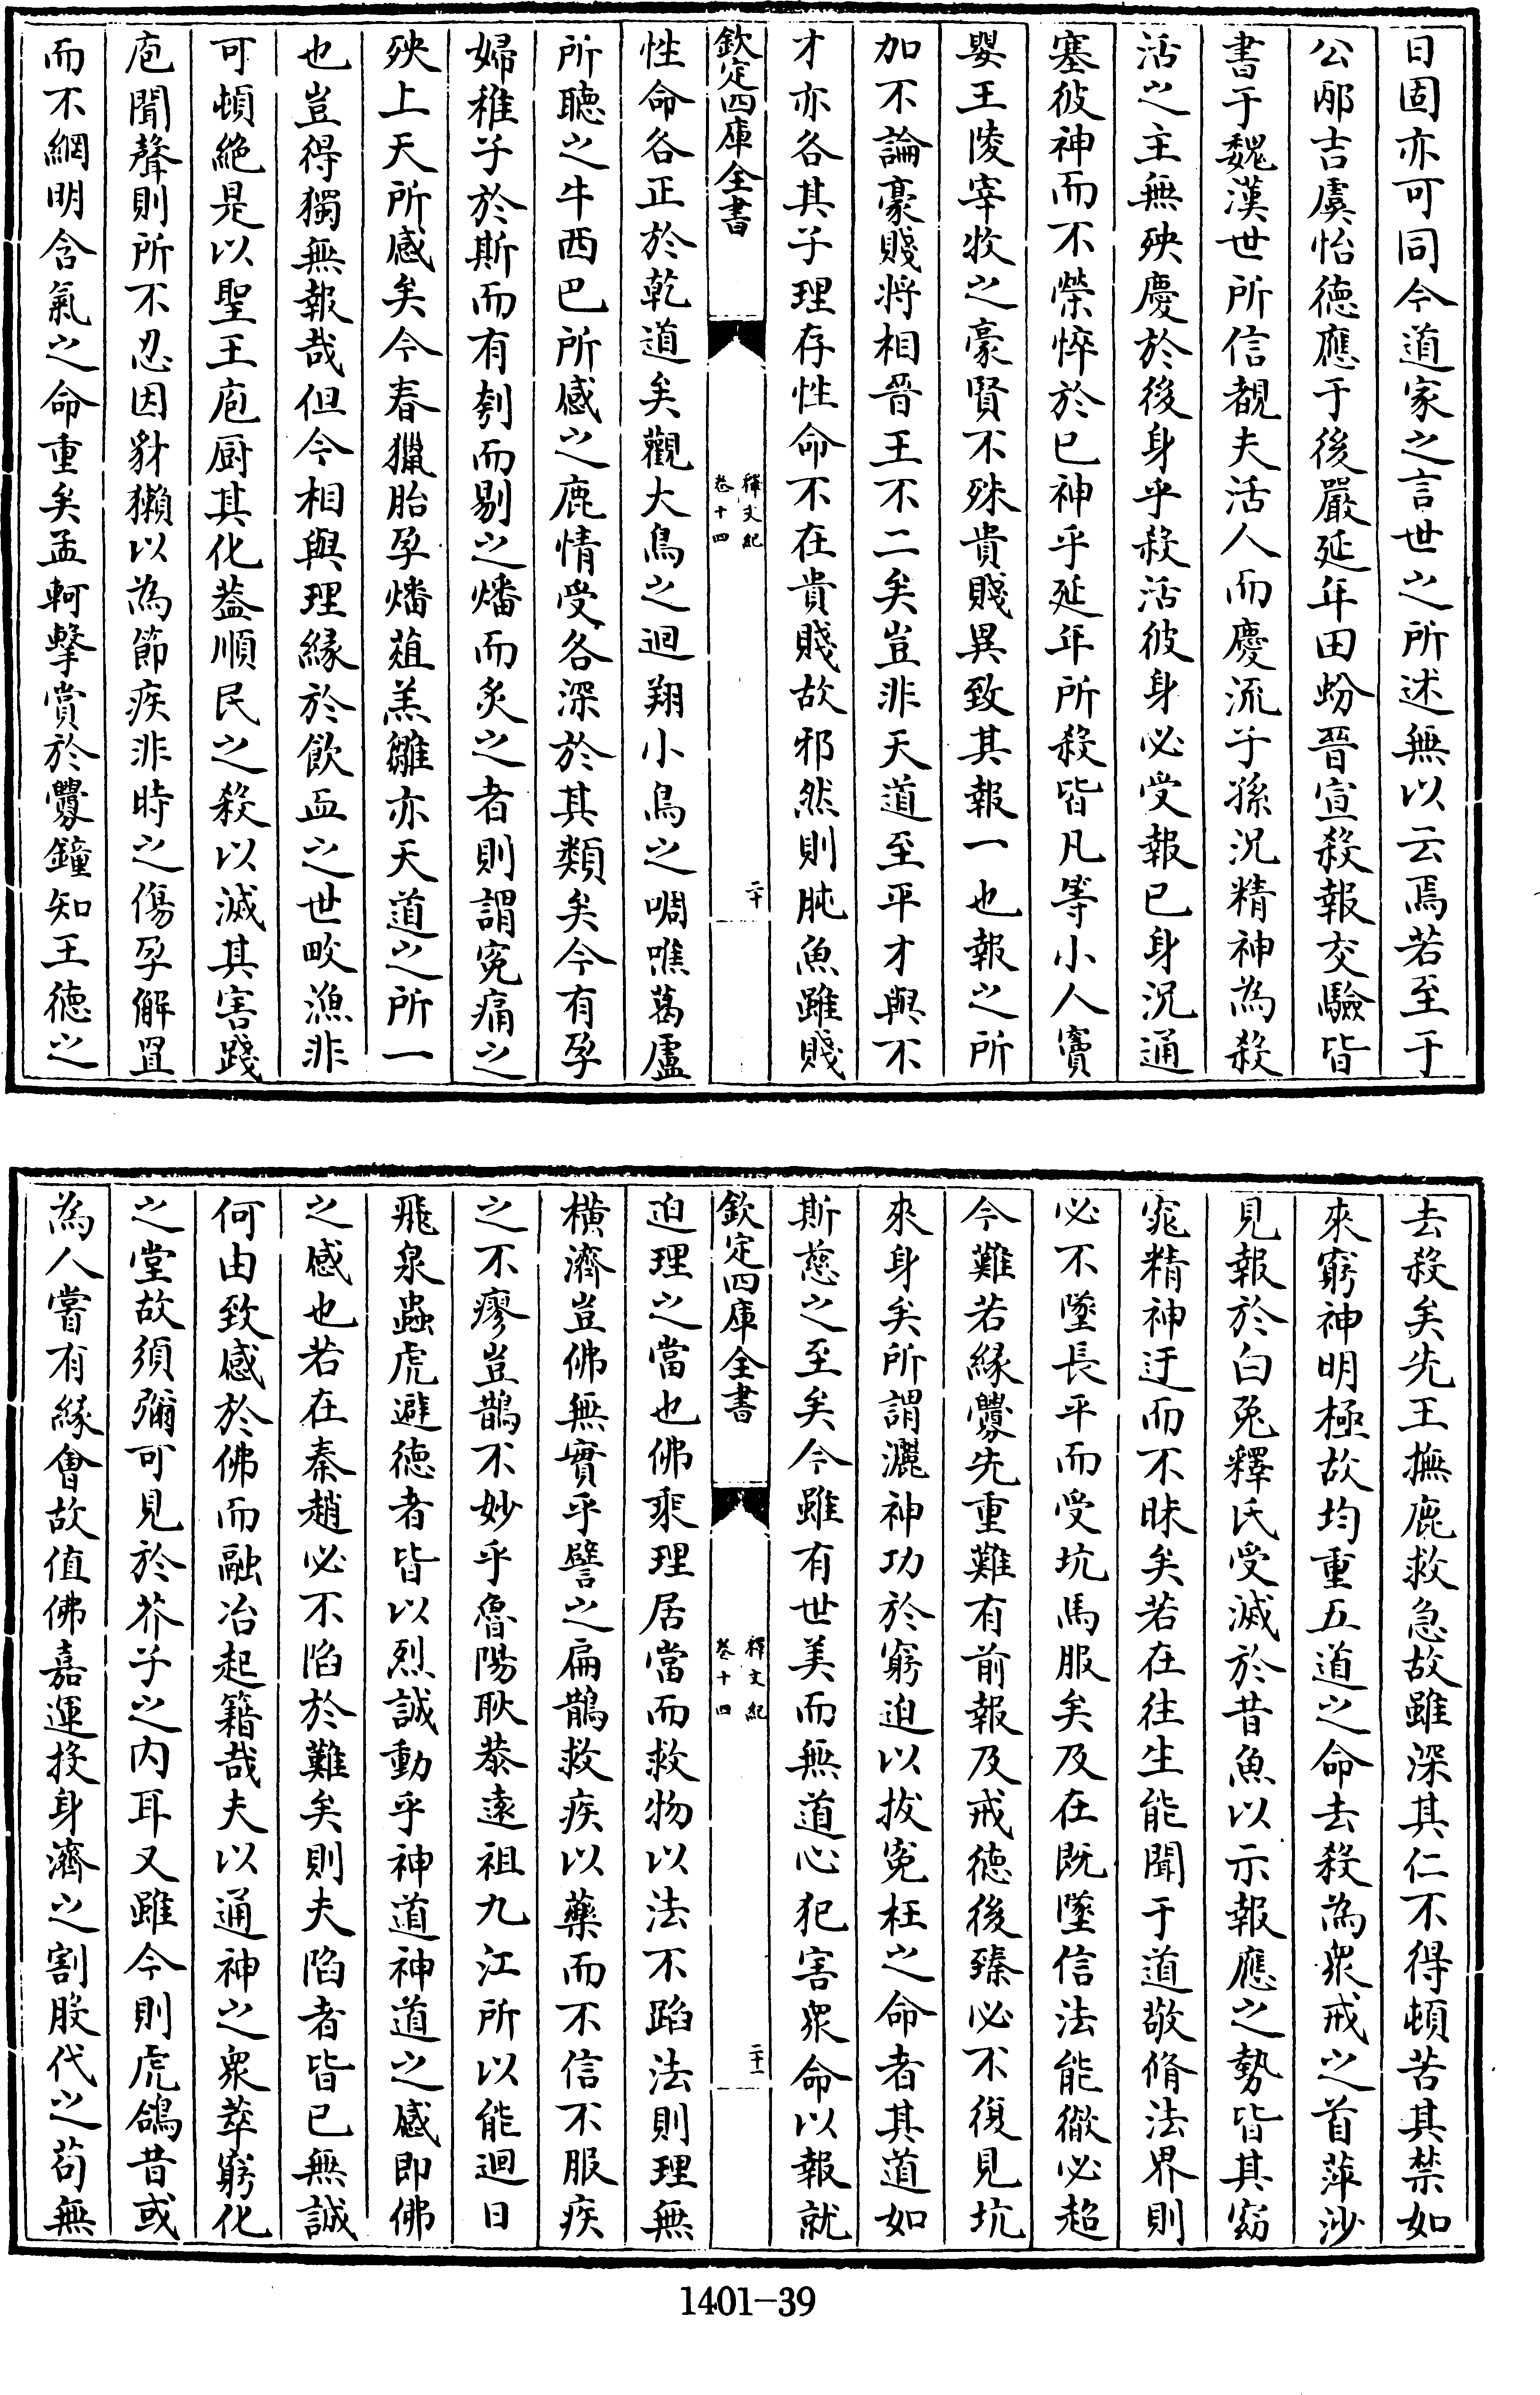 日固亦可同今道家之言世之所述無以云焉若至于
公邴吉虞怡徳應于後嚴延年田蚡晉宣殺報交驗皆
書于魏漢世所信覩夫活人而慶流子孫況精神為殺
活之主無殃慶於後身乎殺活彼身必受報已身況通
塞彼神而不榮悴於已神乎延年所殺皆凡等小人竇
嬰王陵宰牧之豪賢不殊貴賤異致其報一也報之所
加不論豪賤將相晉王不二矣豈非天道至平才與不
才亦各其子理存性命不在貴賤故邪然則肫魚雖賤
欽定四庫全書
釋文紀
卷十四
二十
性命各正於乾道矣觀大鳥之迴翔小鳥之啁噍葛盧
所聽之牛西巴所感之鹿情受各深於其類矣今有孕
婦稚子於斯而有刳而剔之燔而炙之者則謂寃痛之
殃上天所感矣今春獵胎孕燔葅羔雛亦天道之所一
也豈得獨無報哉但今相與理緣於飲血之世畋漁非
可頓絶是以聖王庖厨其化葢順民之殺以減其害踐
庖聞聲則所不忍因豺獺以為節疾非時之傷孕解罝
而不網明含氣之命重矣孟軻擊賞於釁鐘知王徳之
去殺矣先王撫麑救急故雖深其仁不得頓苦其禁如
來窮神明極故均重五道之命去殺為衆戒之首萍沙
見報於白兎釋氏受滅於昔魚以示報應之勢皆其窈
窕精神迂而不昧矣若在往生能聞于道敬脩法界則
必不墜長平而受坑馬服矣及在既墜信法能徹必超
今難若縁釁先重難有前報及戒徳後臻必不復見坑
來身矣所謂灑神功於窮迫以拔寃枉之命者其道如
斯慈之至矣今雖有世美而無道心犯害衆命以報就
欽定四庫全書
釋文紀
卷十四
二十一
迫理之當也佛乘理居當而救物以法不蹈法則理無
横濟豈佛無實乎譬之扁鵲救疾以藥而不信不服疾
之不瘳豈鵲不妙乎魯陽耿恭遠祖九江所以能迴日
飛泉蟲虎避徳者皆以烈誠動乎神道神道之感即佛
之感也若在秦趙必不陷於難矣則夫陷者皆已無誠
何由致感於佛而融冶起籍哉夫以通神之衆萃窮化
之堂故須彌可見於芥子之内耳又雖今則虎鴿昔或
為人嘗有緣會故值佛嘉運投身濟之割股代之茍無
1401-39